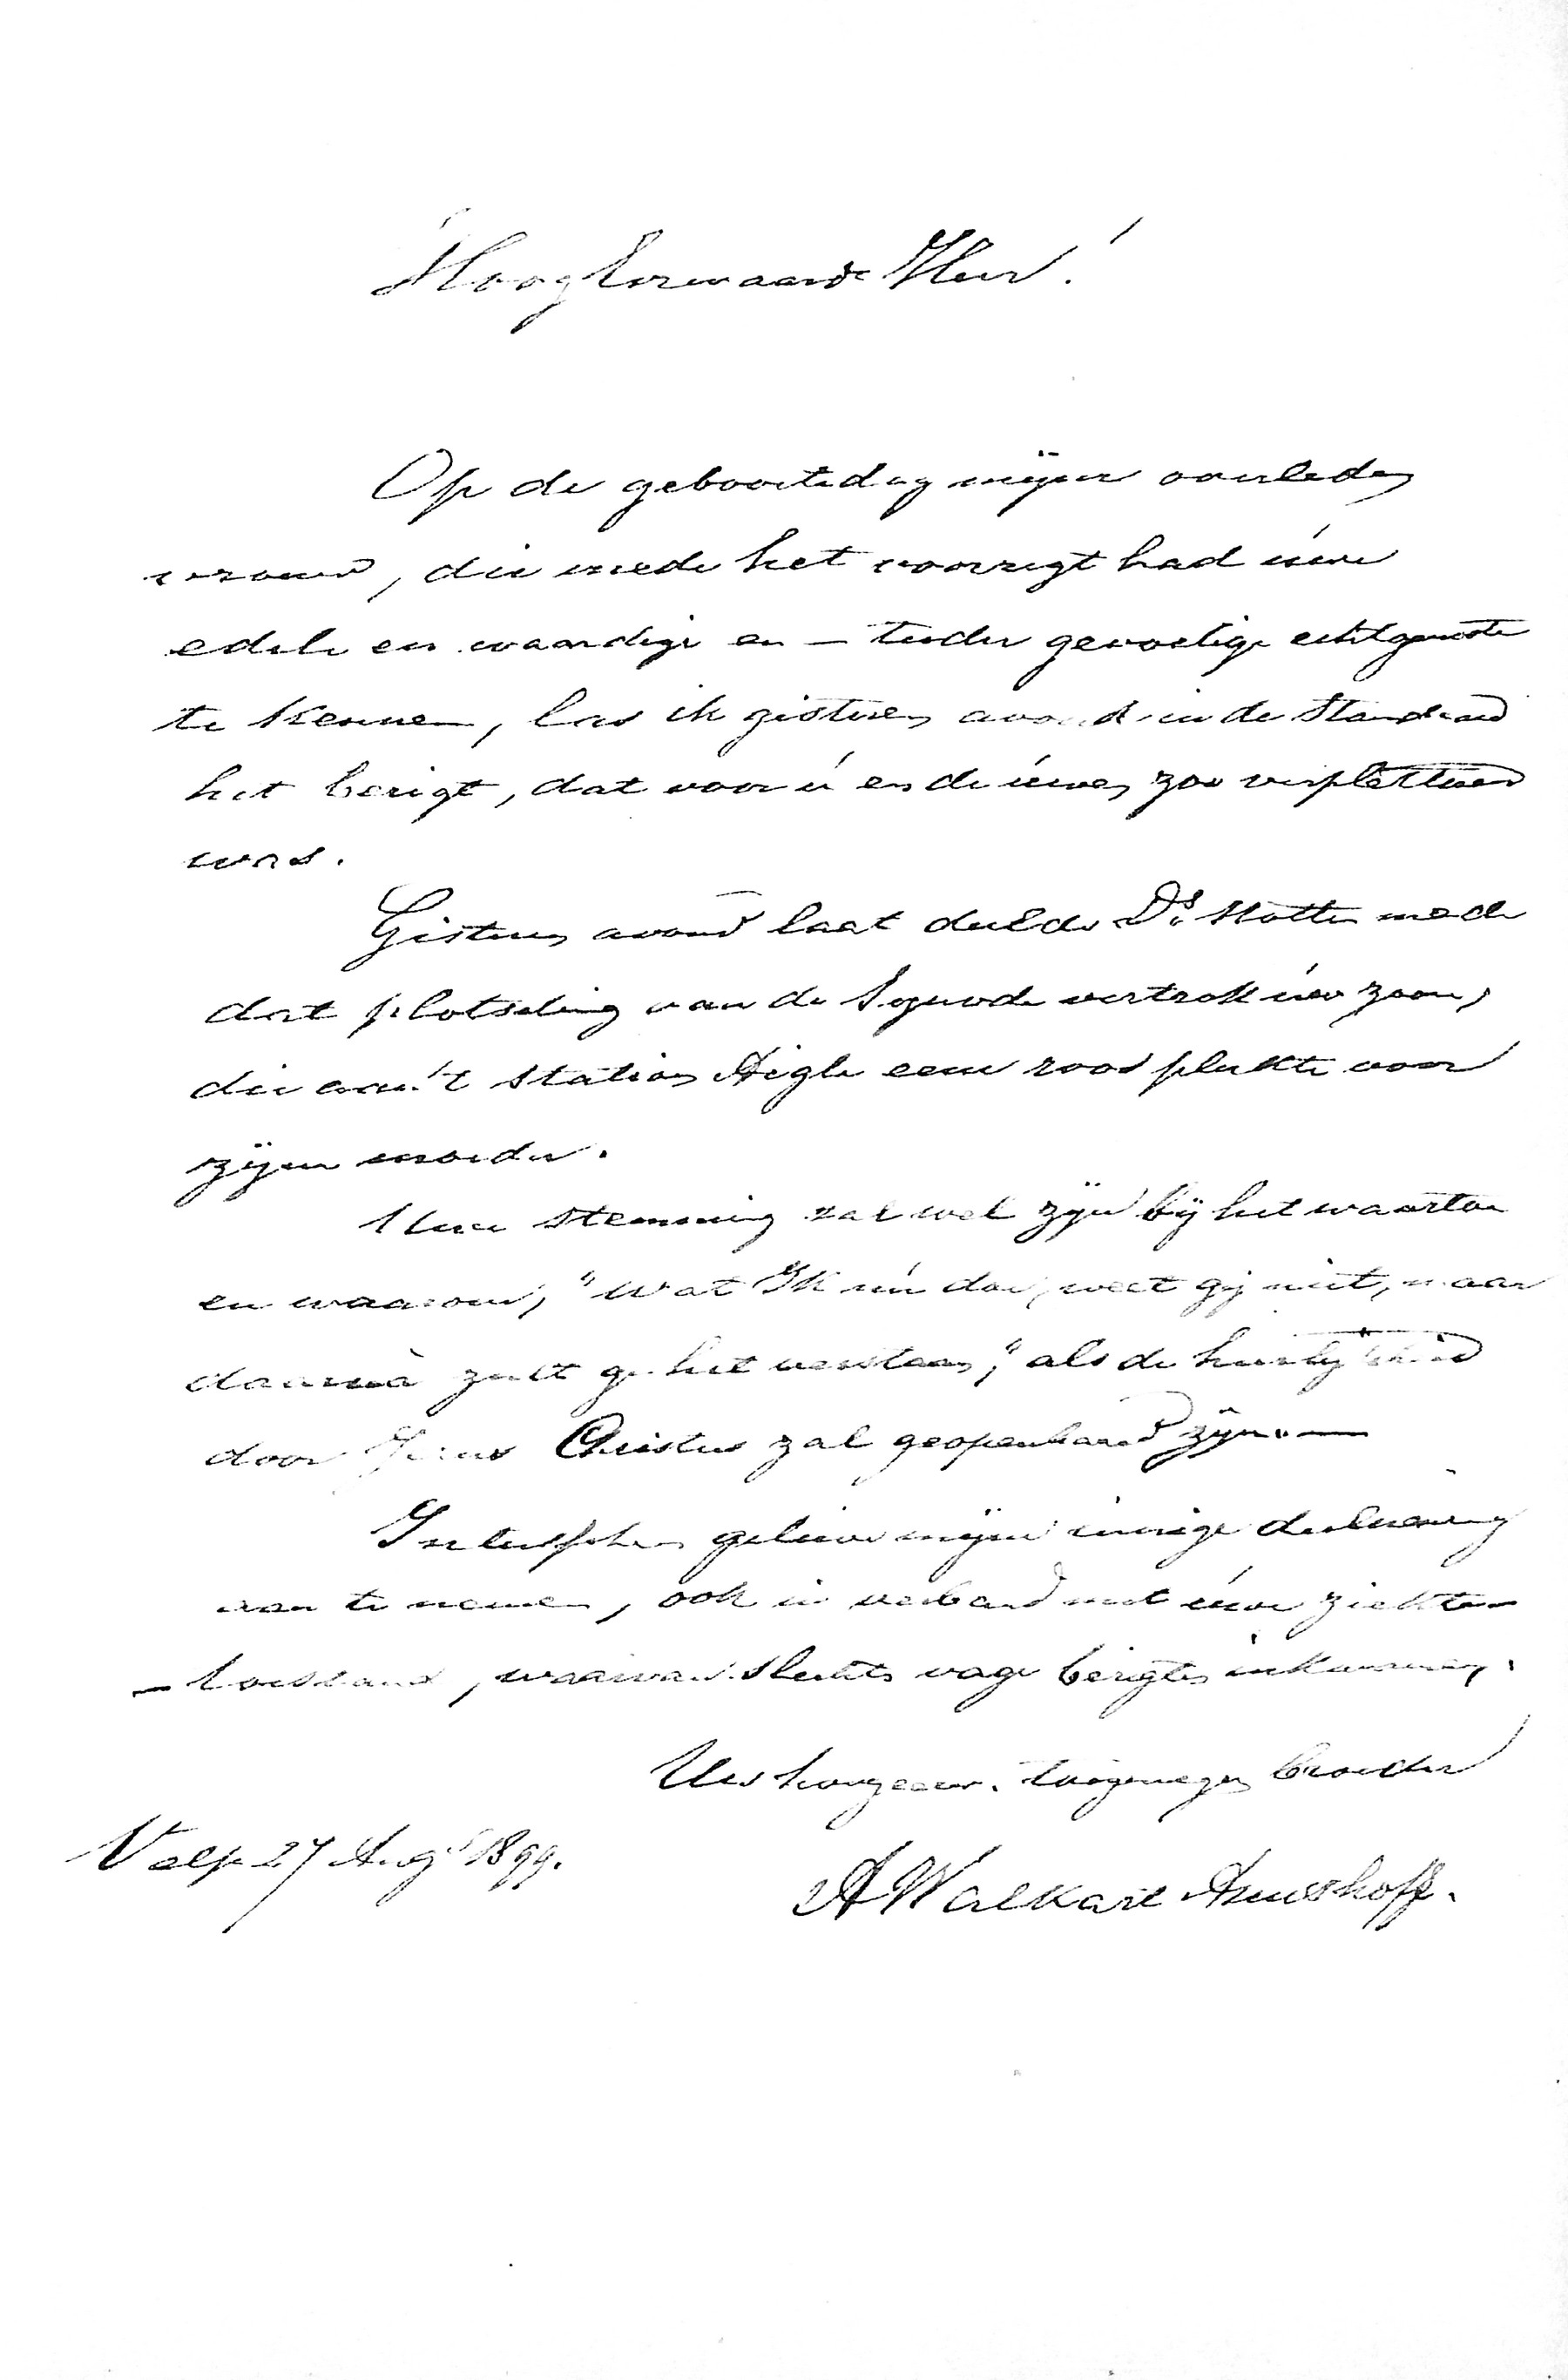 Hoog Eerwaarde Heer!
Op de geboortedag mijner overleden
vrouw, die mede het voorregt had úwe
edele en waardige en – teeder gevoelige echtgenoote
te kennen, las ik gisteren avond in de Standaard
het berigt, dat voor ú en de úwen zoo verpletterend
was.
Gisteren avond laat deelde Ds. mede
dat plotseling van de Synode vertrok úw zoon,
die aan 't station Aigle eene roos plukte voor
zijne moeder.
Uwe stemming zal wel zijn bij het waartoe
en waarom, "Wat Ik nú doe, weet gij niet, maar
daarnà zult gij het verstaan," als de heerlijkheid
door Jezus Christus zal geopenbaard zijn. —
Intusschen gelieve mijne innige deelneming
aan te nemen, ook in verband met úwe ziekte-
- toestand, waarvan slechts vage berigten inkwamen.
Uw toegenegen broeder
Velp 27 Augs 1899.
A Walkate